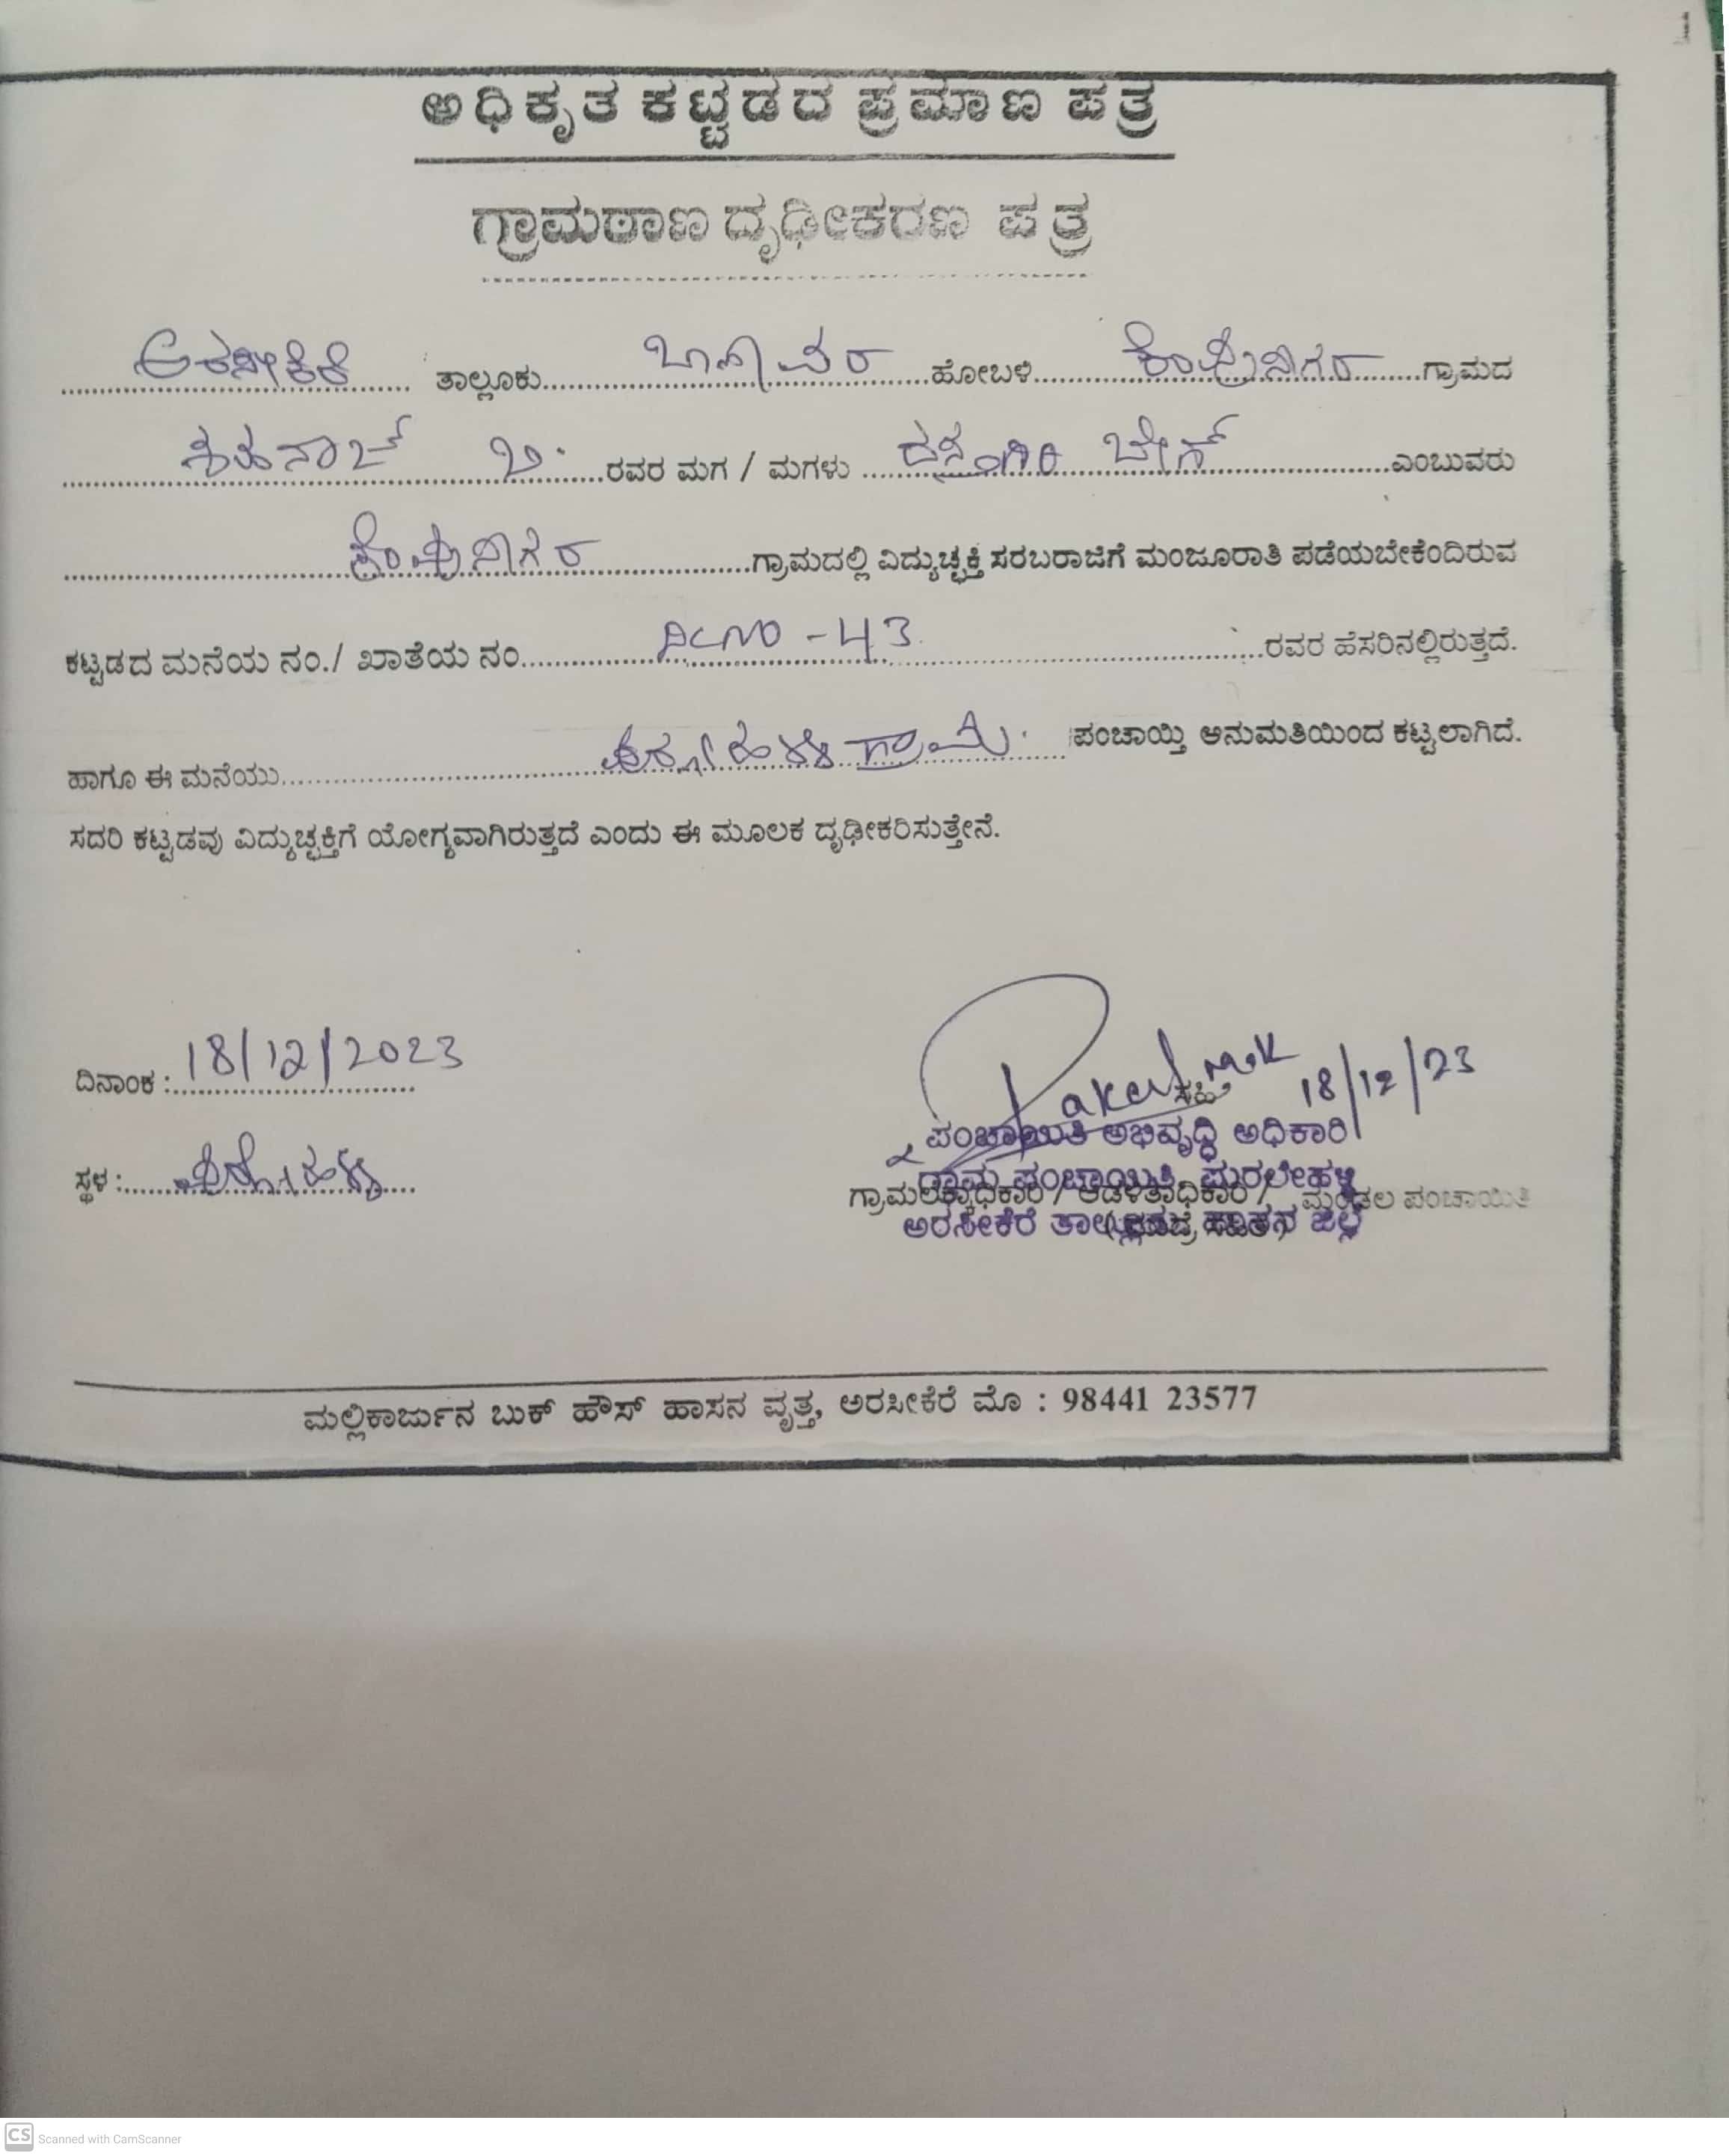 1
ಅಧಿಕೃತ ಕಟ್ಟಡದ ಪ್ರಮಾಣ ಪತ್ರ
ಗ್ರಾಮಠಾಣ ದೃಢೀಕರಣ ಪತ್ರ
ಅರಸೀಕೆರೆ ತಾಲ್ಲೂಕು ಬಾಣಾವರ ಹೋಬಳಿ ಕೆಂಪುನಗರ ಗ್ರಾಮದ
ಶಹನಾಜ್ ಬಿ. ರವರ ಮಗ / ಮಗಳು ಬೇಗ್ ಎಂಬುವರು
ಕೆಂಪುನಗರ ಗ್ರಾಮದಲ್ಲಿ ವಿದ್ಯುಚ್ಛಕ್ತಿ ಸರಬರಾಜಿಗೆ ಮಂಜೂರಾತಿ ಪಡೆಯಬೇಕೆಂದಿರುವ
ಕಟ್ಟಡದ ಮನೆಯ ನಂ./ ಖಾತೆಯ ನಂ. -43 ರವರ ಹೆಸರಿನಲ್ಲಿರುತ್ತದೆ.
ಹಾಗೂ ಈ ಮನೆಯು ಗ್ರಾಮ ಪಂಚಾಯ್ತಿ ಅನುಮತಿಯಿಂದ ಕಟ್ಟಲಾಗಿದೆ.
ಸದರಿ ಕಟ್ಟಡವು ವಿದ್ಯುಚ್ಛಕ್ತಿಗೆ ಯೋಗ್ಯವಾಗಿರುತ್ತದೆ ಎಂದು ಈ ಮೂಲಕ ದೃಢೀಕರಿಸುತ್ತೇನೆ.
ದಿನಾಂಕ : 18/12/2023
ಸಹಿ 18/12/23
ಪಂಚಾಯಿತಿ ಅಭಿವೃದ್ಧಿ ಅಧಿಕಾರಿ
ಸ್ಥಳ :
ಗ್ರಾಮ ಪಂಚಾಯಿತಿ, ಮುರಲೇಹಳ್ಳಿ
ಗ್ರಾಮಲೆಕ್ಕಾಧಿಕಾರಿ / ಆಡಳಿತಾಧಿಕಾರಿ / ಮಂಡಲ ಪಂಚಾಯಿತಿ
ಅರಸೀಕೆರೆ ತಾಲ್ಲೂಕು, ಹಾಸನ ಜಿಲ್ಲೆ
ಮಲ್ಲಿಕಾರ್ಜುನ ಬುಕ್ ಹೌಸ್ ಹಾಸನ ವೃತ್ತ, ಅರಸೀಕೆರೆ ಮೊ : 98441 23577
CS Scanned with CamScanner